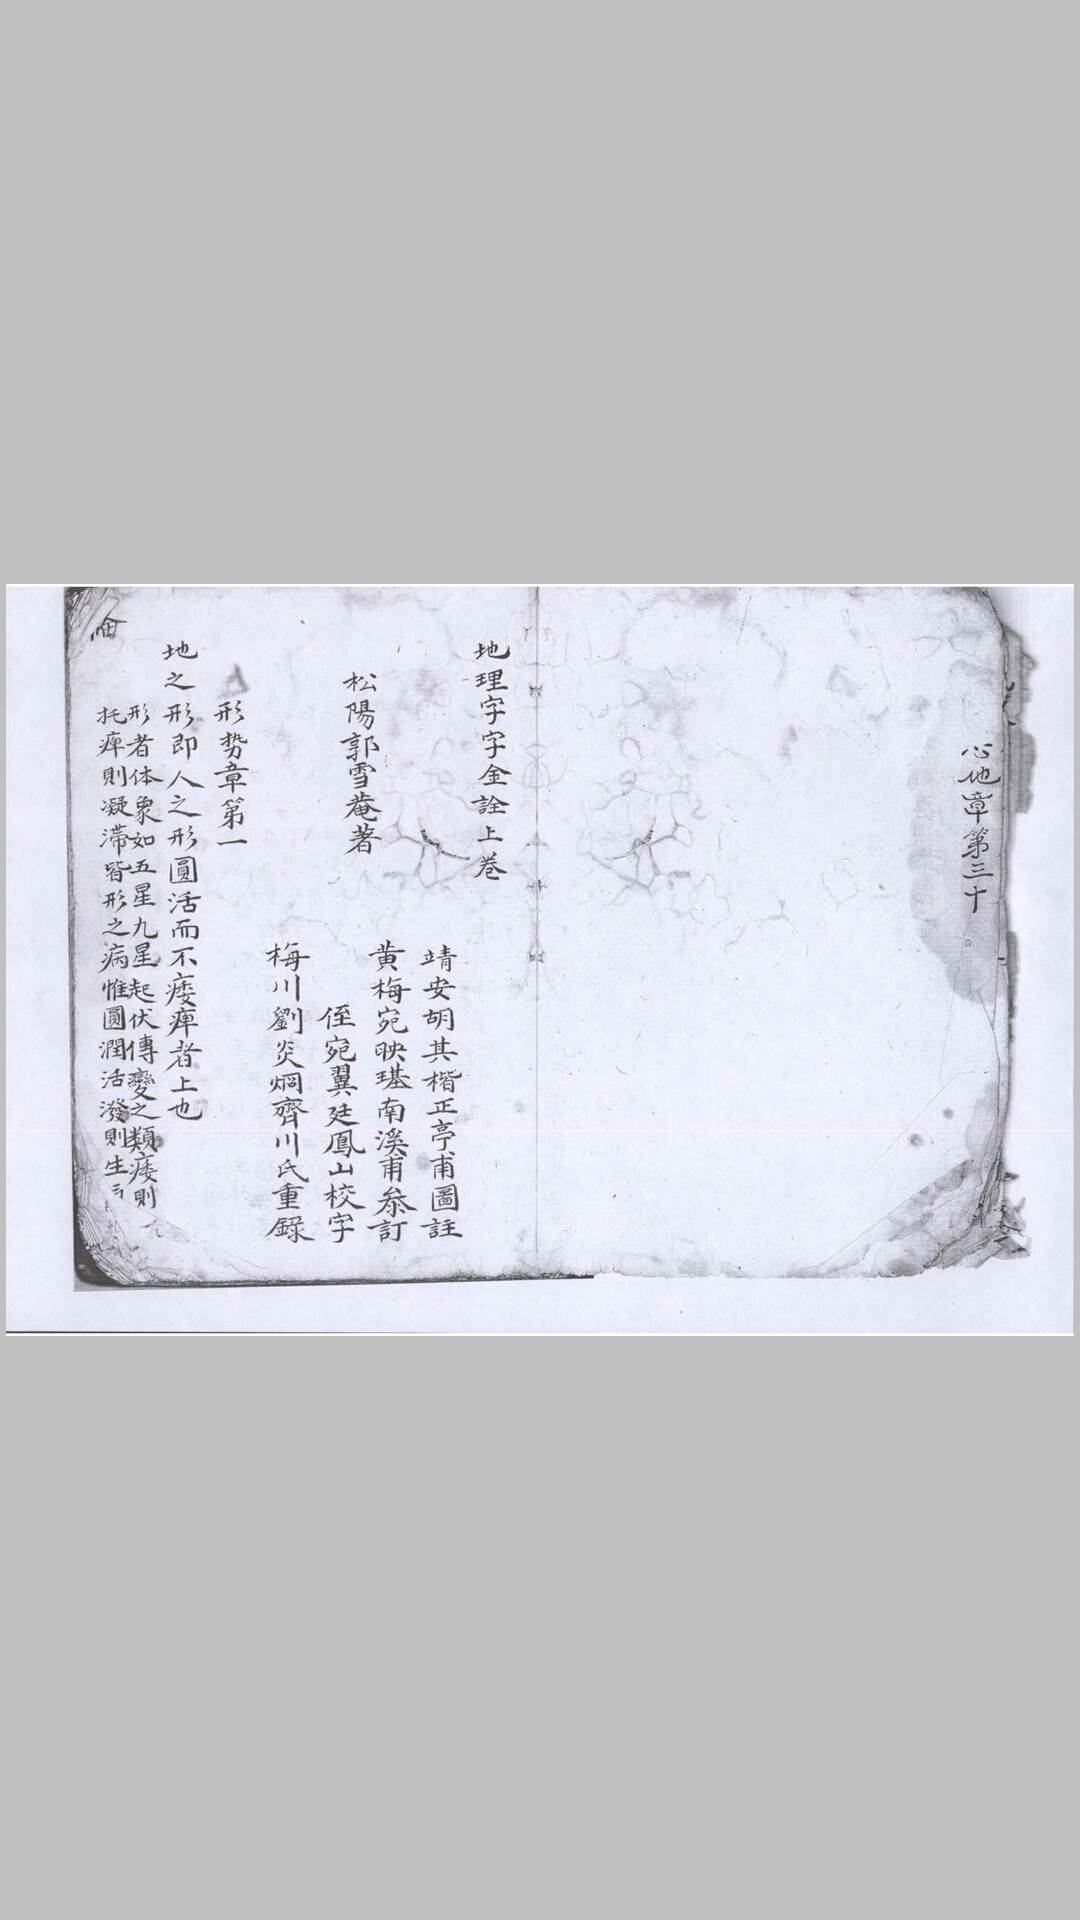 心地章第三十
地理字字金詮上卷
靖安胡其楷正亭甫圖註
松陽郭雪菴著
黄梅宛映璂南溪甫叅訂
侄宛翼廷鳳山校字
梅川劉炎烱齊川氏重錄
形势章第一
地之形即人之形圓活而不痿痺者上也
形者体象如五星九星起伏傳變之類痿則
托痺則凝滯皆形之病惟圓潤活潑則生